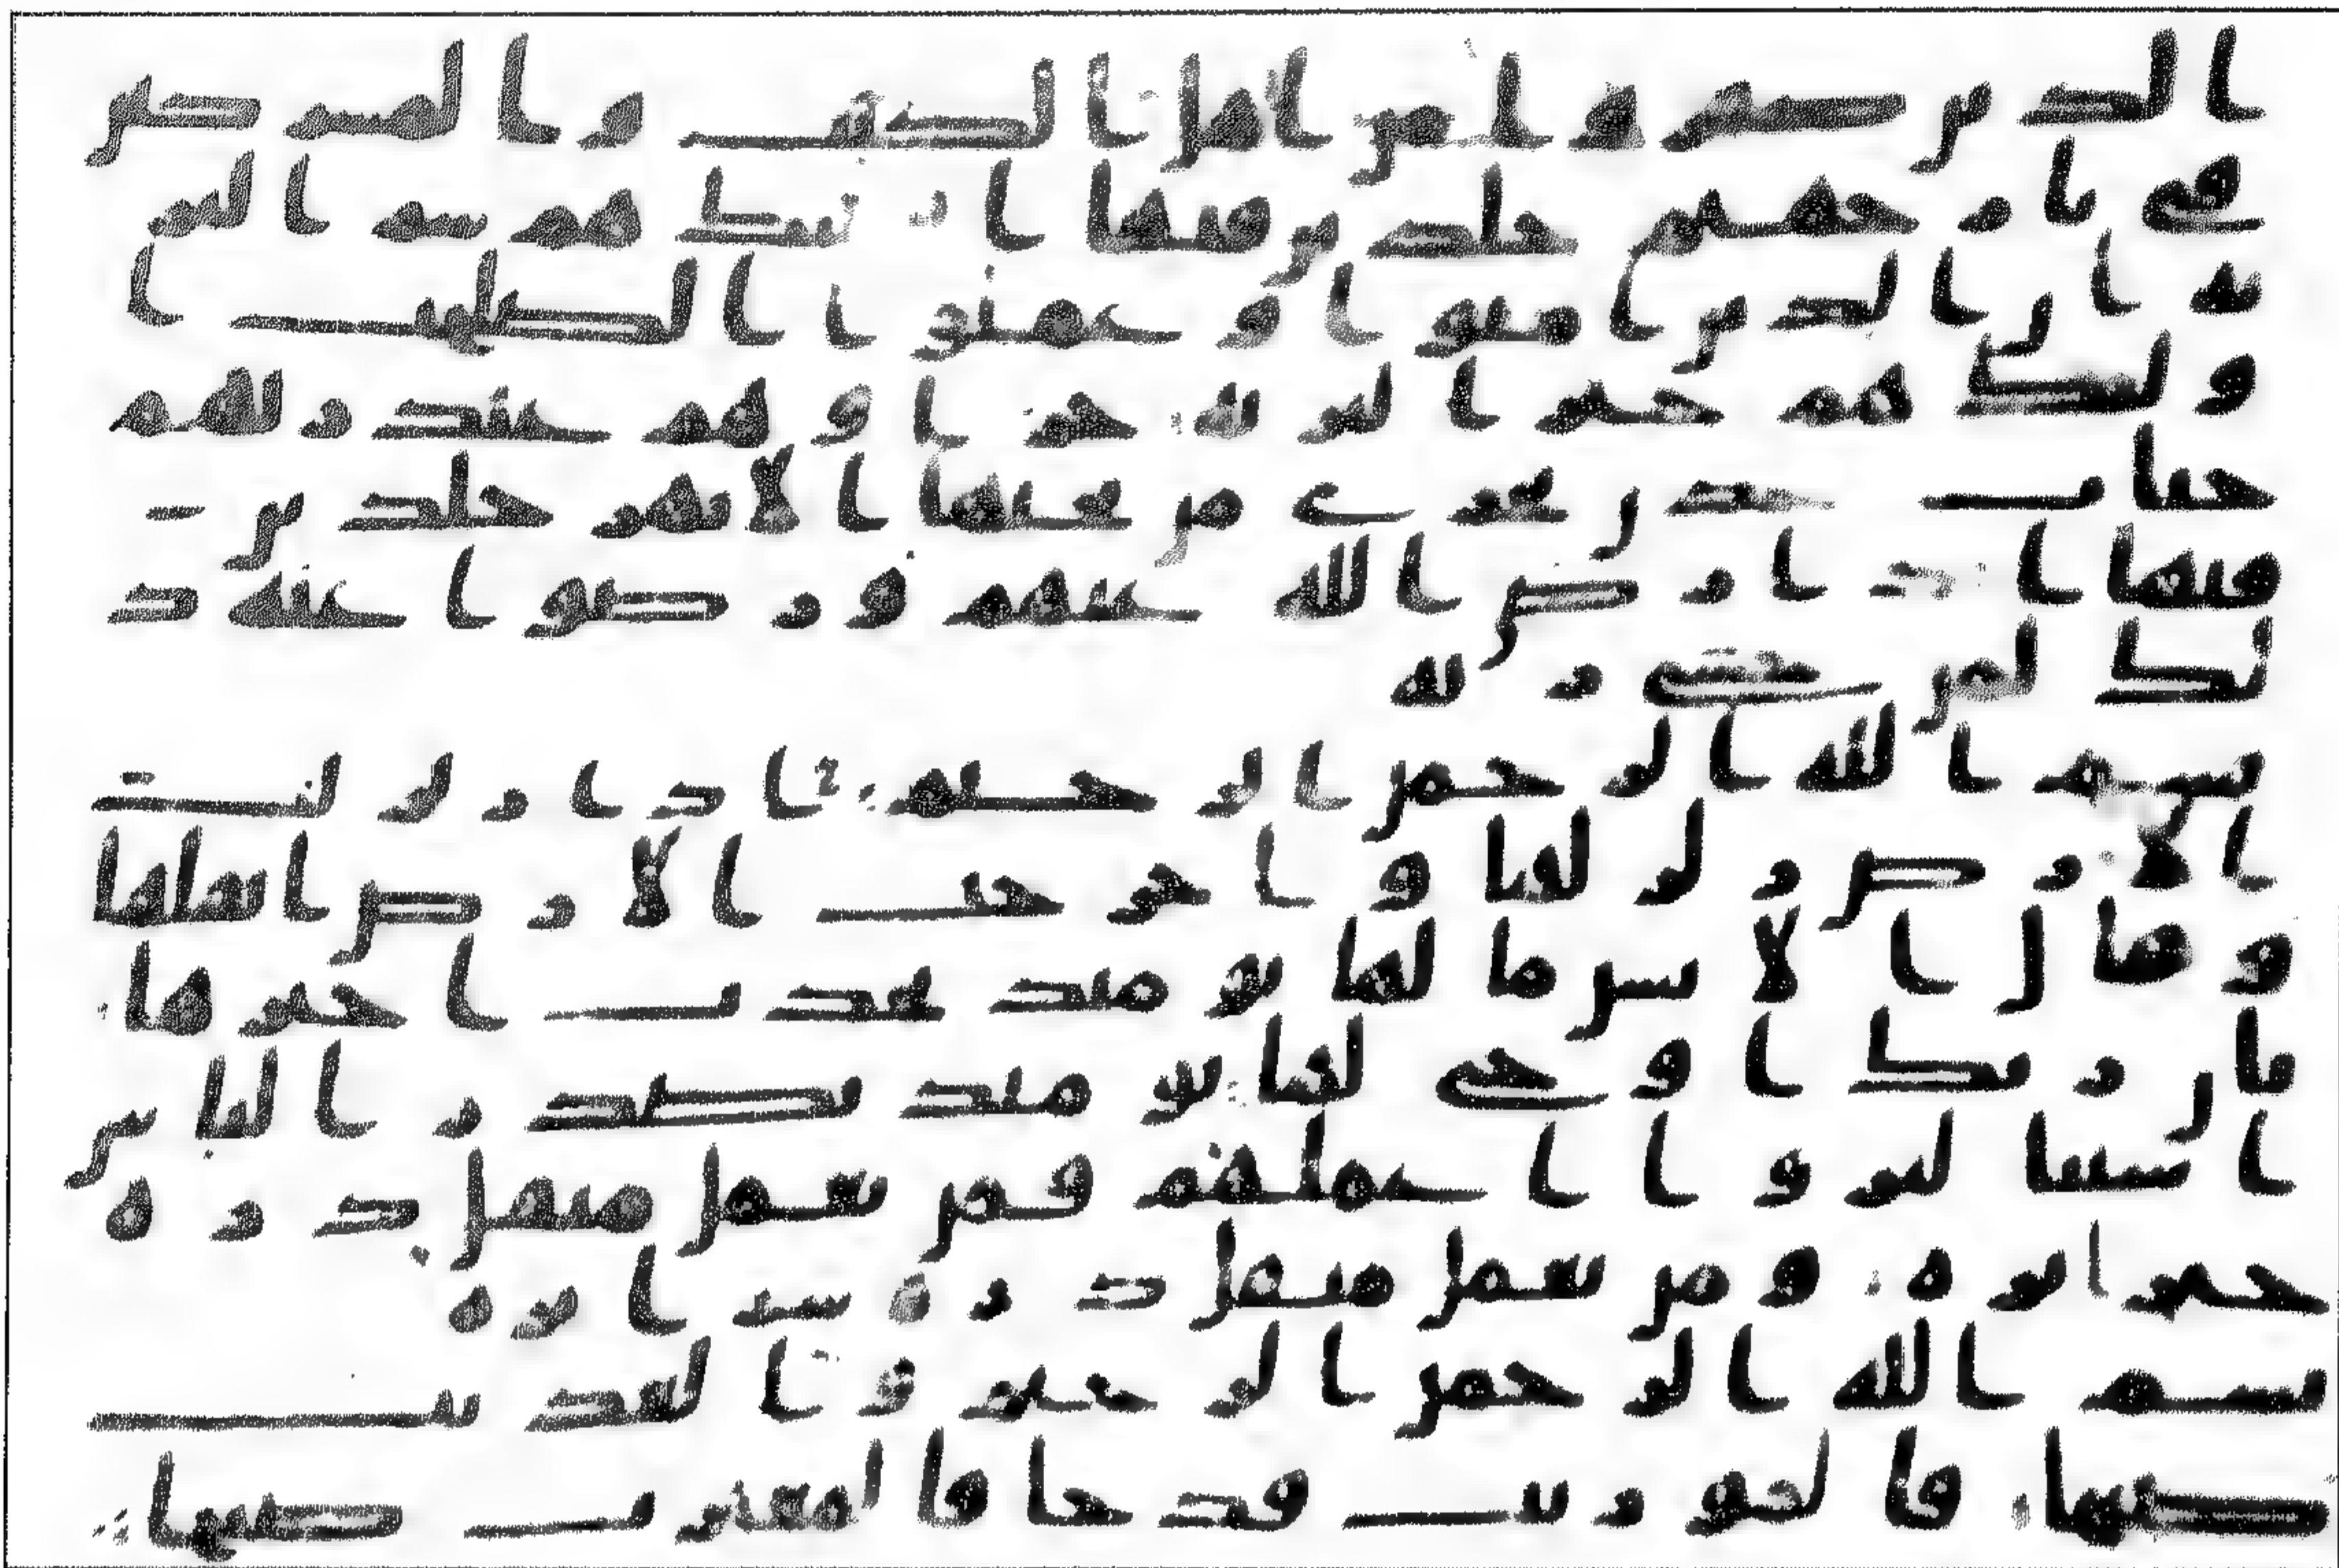 الذين كفروا من اهل الكتب والمشركين
في نار جهنم خلدين فيها اولئك هم شر البر
ية ان الذين امنوا وعملوا الصلحت ا
ولئك هم خير البرية جزاوهم عند ربهم
جنت عدن تجري من تحتها الانهر خلدين
فيها ابدا رضي الله عنهم ورضوا عنه ذ
لك لمن خشي ربه
بسم الله الرحمن الرحيم اذا زلزلت
الارض زلزلها واخرجت الارض اثقلها
وقال الانسن ما لها يومئذ تحدث اخبرها
بان ربك اوحى لها يومئذ يصدر الناس
اشتتا ليروا اعملهم فمن يعمل مثقل ذرة
خيرا يره ومن يعمل مثقل ذرة شرا يره
بسم الله الرحمن الرحيم والعديت
ضبحا فالموريت قدحا فالمغيرت صبحا